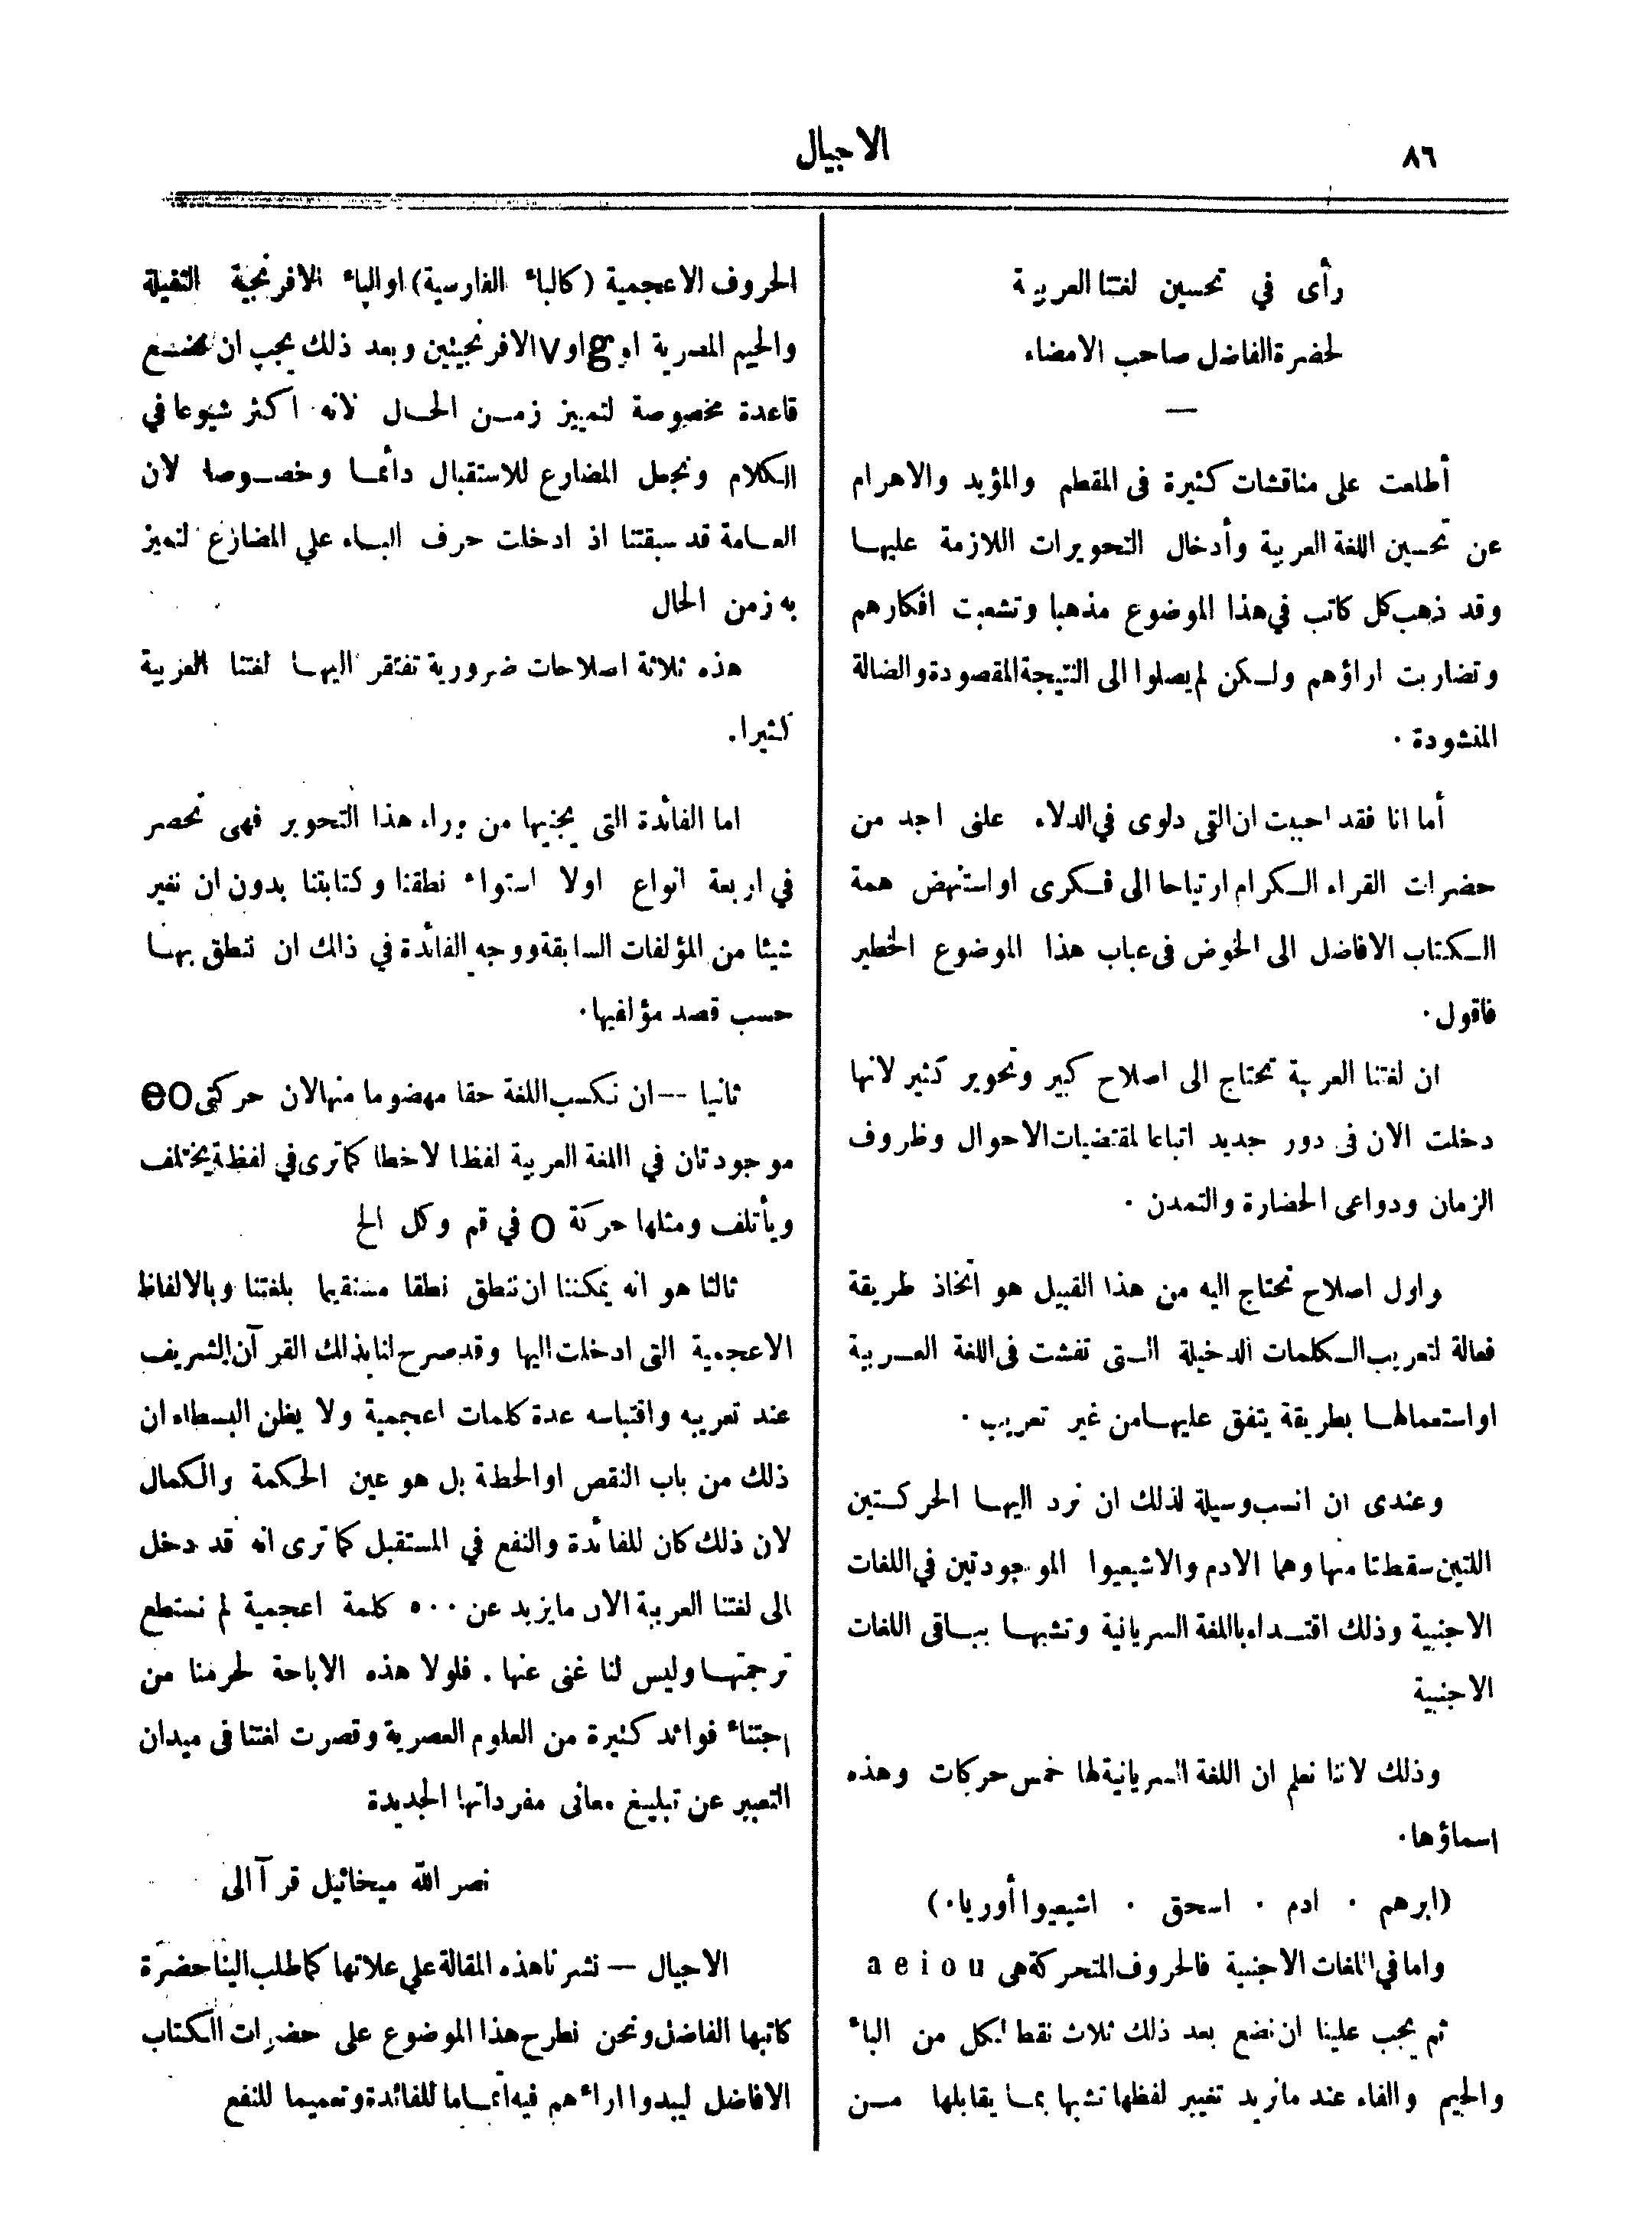 ٨٦
الاجيال
رأى في تحسين لغتنا العربية
لحضرة الفاضل صاحب الامضاء
—
أطلعت على مناقشات كثيرة فى المقطم والمؤيد والاهرام
عن تحسين اللغة العربية وأدخال التحويرات اللازمة عليها
وقد ذهب كل كاتب في هذا الموضوع مذهبا وتشعبت افكارهم
وتضاربت اراؤهم ولكن لم يصلوا الى النتيجة المقصودة والضالة
المنشودة .
أما انا فقد احببت ان القى دلوى في الدلاء علنى اجد من
حضرات القراء الكرام ارتياحا الى فكرى او استنهض همة
الكتاب الافاضل الى الخوض فى عباب هذا الموضوع الخطير
فاقول .
ان لغتنا العربية تحتاج الى اصلاح كبير وتحوير كثير لانها
دخلت الان فى دور جديد اتباعا لمقتضيات الاحوال وظروف
الزمان ودواعى الحضارة والتمدن .
واول اصلاح نحتاج اليه من هذا القبيل هو اتخاذ طريقة
فعالة لتعريب الكلمات الدخيلة التى تفشت فى اللغة العربية
او استعمالها بطريقة يتفق عليها من غير تعريب .
وعندى ان انسب وسيلة لذلك ان نرد اليها الحركتين
اللتين سقطتا منها وهما الادم والاشيعيوا الموجودتين في اللغات
الاجنبية وذلك اقتداء باللغة السريانية وتشبها بباقى اللغات
الاجنبية
وذلك لاننا نعلم ان اللغة السريانية لها خمس حركات وهذه
اسماؤها .
(ابرهم . ادم . اسحق . اشيعيوا أوريا .)
واما في اللغات الاجنبية فالحروف المتحركة هى a e i o u
ثم يجب علينا ان نضع بعد ذلك ثلاث نقط لكل من الباء
والجيم والفاء عند مانريد تغيير لفظها تشبها بما يقابلها من
الحروف الاعجمية (كالباء الفارسية) او الپاء الافرنجية الثقيلة
والجيم المصرية او g او v الافرنجيتين وبعد ذلك يجب ان نضع
قاعدة مخصوصة لتمييز زمن الحال لانه اكثر شيوعا في
الكلام ونجعل المضارع للاستقبال دائما وخصوصا لان
العامة قد سبقتنا اذ ادخلت حرف الباء علي المضارع لتميز
به زمن الحال
هذه ثلاثة اصلاحات ضرورية تفتقر اليها لغتنا العربية
كثيرا .
اما الفائدة التى يجنيها من وراء هذا التحوير فهى تحصر
في اربعة انواع اولا استواء نطقنا وكتابتنا بدون ان نغير
شيئا من المؤلفات السابقة ووجه الفائدة في ذالك ان ننطق بها
حسب قصد مؤلفيها .
ثانيا — ان نكسب اللغة حقا مهضوما منها لان حركتى eo
موجودتان في اللغة العربية لفظا لاخطا كما ترى في لفظة يختلف
ويأتلف ومثلها حركة o في قم وكل الخ
ثالثا هو انه يمكننا ان ننطق نطقا مستقيما بلغتنا وبالالفاظ
الاعجمية التى ادخلت اليها وقد صرح لنا بذلك القرآن الشريف
عند تعريبه واقتباسه عدة كلمات اعجمية ولا يظن البسطاء ان
ذلك من باب النقص او الحطة بل هو عين الحكمة والكمال
لان ذلك كان للفائدة والنفع في المستقبل كما ترى انه قد دخل
الى لغتنا العربية الان مايزيد عن ٥٠٠ كلمة اعجمية لم نستطع
ترجمتها وليس لنا غنى عنها . فلولا هذه الاباحة لحرمنا من
اجتناء فوائد كثيرة من العلوم العصرية وقصرت لغتنا فى ميدان
التعبير عن تبليغ معانى مفرداتها الجديدة
نصر الله ميخائيل قرآالى
الاجيال — نشرنا هذه المقالة علي علاتها كما طلب الينا حضرة
كاتبها الفاضل ونحن نطرح هذا الموضوع على حضرات الكتاب
الافاضل ليبدوا اراءهم فيه اتماما للفائدة وتعميما للنفع